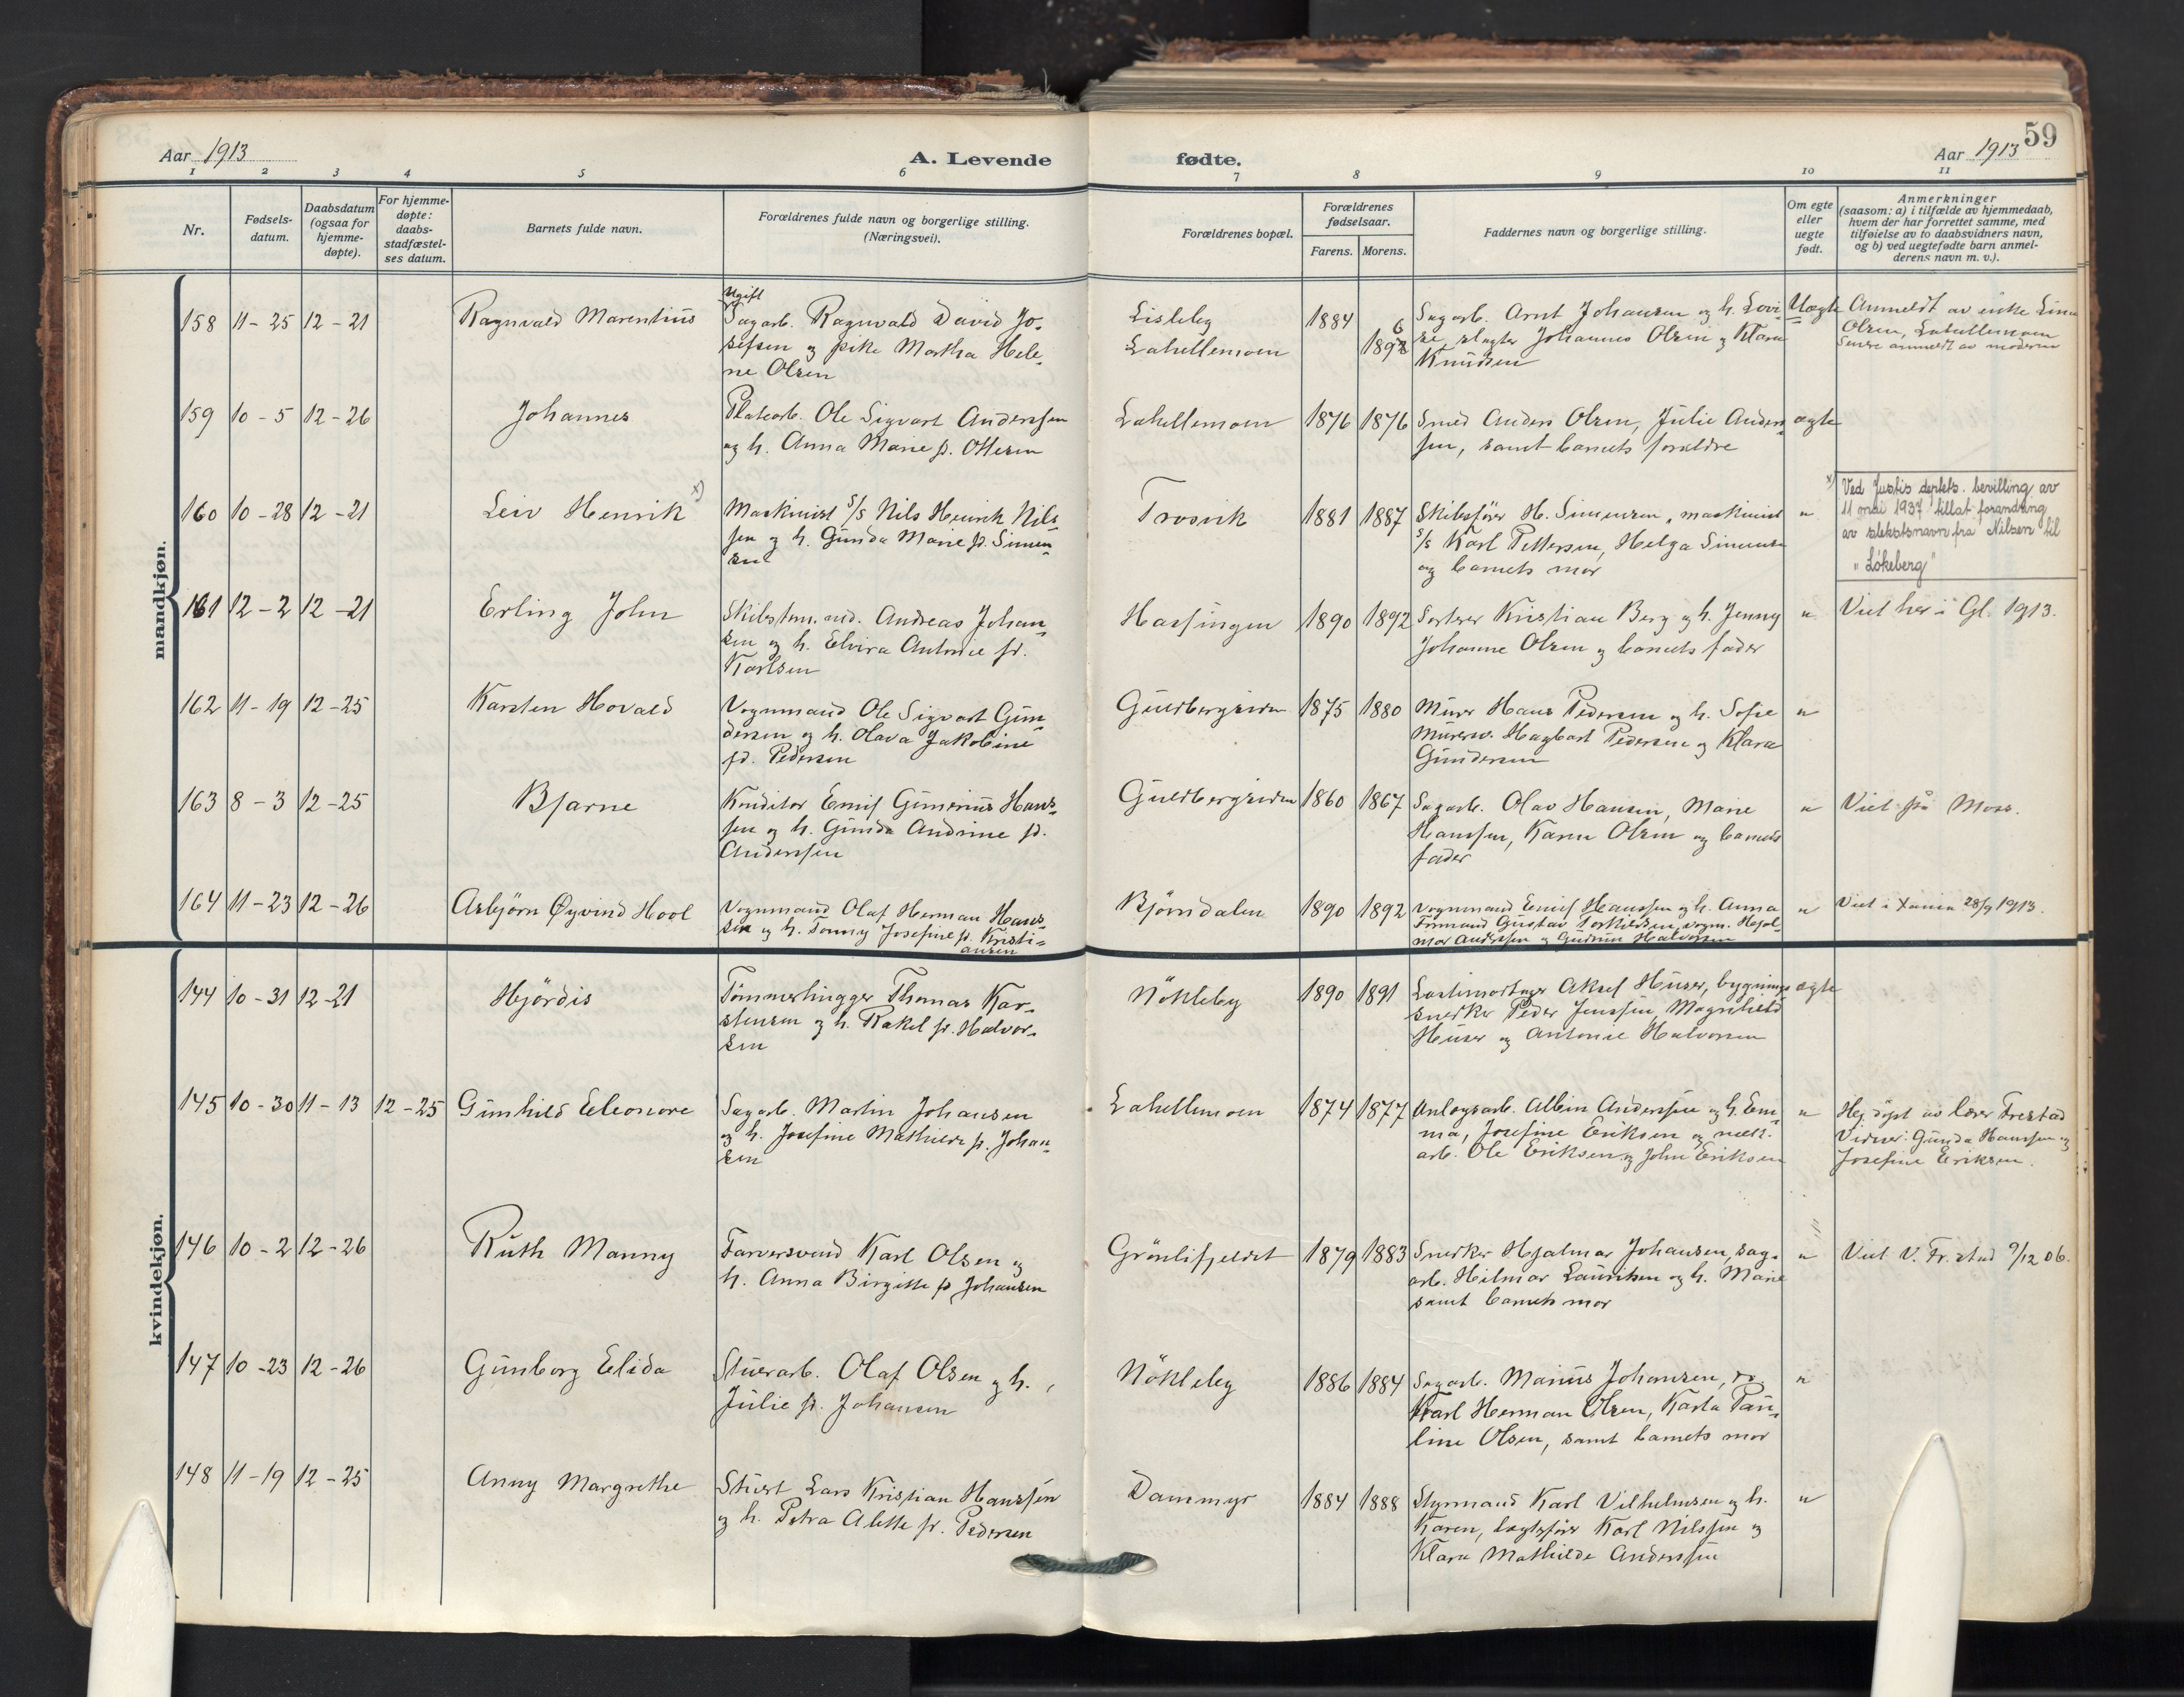 59
Aar 1913
A. Levende
fødte.
Aar 1913
1 2 3 4 5 6 7 8 9 10 11
Nr.
Fødsels-
datum.
Daabsdatum
(ogsaa for
hjemme-
døpte).
For hjemme-
døpte:
daabs-
stadfæstel-
ses datum.
Barnets fulde navn.
Forældrenes fulde navn og borgerlige stilling.
(Næringsvei).
Forældrenes bopæl.
Forældrenes
fødselsaar.
Farens. Morens.
Faddernes navn og borgerlige stilling.
Om egte
eller
uegte
født.
Anmerkninger
(saasom: a) i tilfælde av hjemmedaab,
hvem der har forrettet samme, med
tilføielse av to daabsvidners navn,
og b) ved uegtefødte barn anmel-
derens navn m. v.).
mandkjøn.
158 11-25 12-21
Ragnvald Marentius
Ugift
Sagarb. Ragnvald David Jo-
sefsen og pike Martha Hele-
ne Olsen
Lisleby
Lahellemoen
1884
1896
Sagarb. Arnt Johansen og h. Lovi-
se, slagter Johannes Olsen og Klara
Knudsen
Uægte
Anmeldt av enke Lina
Olsen, Lahellemoen
Senere anmeldt av moderen
159 10-5 12-26
Johannes
Platearb. Ole Sigvart Anderssen
og h. Anna Marie f. Ottesen
Lahellemoen
1876 1876
Smed Anders Olsen, Julie Anders-
sen, samt barnets forældre
ægte
160 10-28 12-21
Leiv Henrik x)
Maskinist S/S Nils Henrik Nils-
sen og h. Gunda Marie f. Simen-
sen
Trosvik
1881 1887
Skibsfører H. Simensen, maskinist
S/S Karl Pettersen, Helga Simensen
og barnets mor
"
x) Ved Justis deptets. bevilling av
11 mai 1937 tillat forandring
av slektsnavn fra Nilsen til
"Lökeberg"
161 12-2 12-21
Erling John
Skibstm.md. Andreas Johan-
sen og h. Elvira Antonie f.
Karlsen
Hassingen
1890 1892
Sorterer Kristian Berg og h. Jenny
Johanne Olsen og barnets fader
"
Viet her i Gl. 1913.
162 11-19 12-25
Karsten Hovald
Vognmand Ole Sigvart Gun-
dersen og h. Olava Jakobine
fd. Pedersen
Guldbergsiden
1875 1880
Murer Hans Pedersen og h. Sofie
Murersv. Hagbart Pedersen og Klara
Gundersen
"
163 8-3 12-25
Bjarne
Konditor Emil Gunerius Hans-
sen og h. Gunda Andrine f.
Anderssen
Guldbergsiden
1860 1867
Sagarb. Olav Hansen, Marie
Hanssen, Karen Olsen og barnets
fader
"
Viet på Moss.
164 11-23 12-26
Asbjörn Øyvind Hool
Vognmand Olaf Herman Hans-
sen og h. Tonny Josefine f. Kristi-
ansen
Björndalen
1890 1892
Vognmand Emil Hanssen og h. Anna
Formand Gustav Torkildsen, vogm. Hjal-
mar Anderssen og Gudrun Halvorsen
"
Viet i Xania 28/9 1913.
kvindekjøn.
144 10-31 12-21
Hjördis
Tömmerhugger Thomas Kar-
stensen og h. Rakel f. Halvor-
sen
Nökleby
1890 1891
Aksel Huser, bygnings
snerker Peder Jenssen, Magnhild
Huser og Antonie Halvorsen
ægte
145 10-30 11-13 12-25
Gunhild Eleonore
Sagarb. Martin Johansen
og h. Josefine Mathilde f. Johan-
sen
Lahellemoen
1874 1877
Anlægsarb. Albin Anderssen og h. Em-
ma, Josefine Eriksen og mek.
arb. Ole Eriksen og John Eriksen
"
Hj. döpt av lærer Frestad
Vidner: Gunda Hanssen og
Josefine Eriksen.
146 10-2 12-26
Ruth Manny
Farversvend Karl Olsen og
h. Anna Birgitte f. Johansen
Grönlifjeldet
1879 1883
Snerker Hjalmar Johansen, sag-
arb. Hilmar Lauritsen og h. Marie
samt barnets mor
"
Viet V. Fr.stad 9/12 06.
147 10-23 12-26
Gunborg Elida
Stuerarb. Olaf Olsen og h.
Julie f. Johansen
Nökleby
1886 1884
Sagarb. Marius Johansen, do.
Karl Herman Olsen, Karla Pau-
line Olsen, samt barnets mor
"
148 11-19 12-25
Anny Margrethe
Stuert Lars Kristian Hanssen
og h. Petra Alette f. Pedersen
Dammyr
1884 1888
Styrmand Karl Vilhelmsen og h.
Karen, Karl Nilssen og
Klara Mathilde Anderssen
"